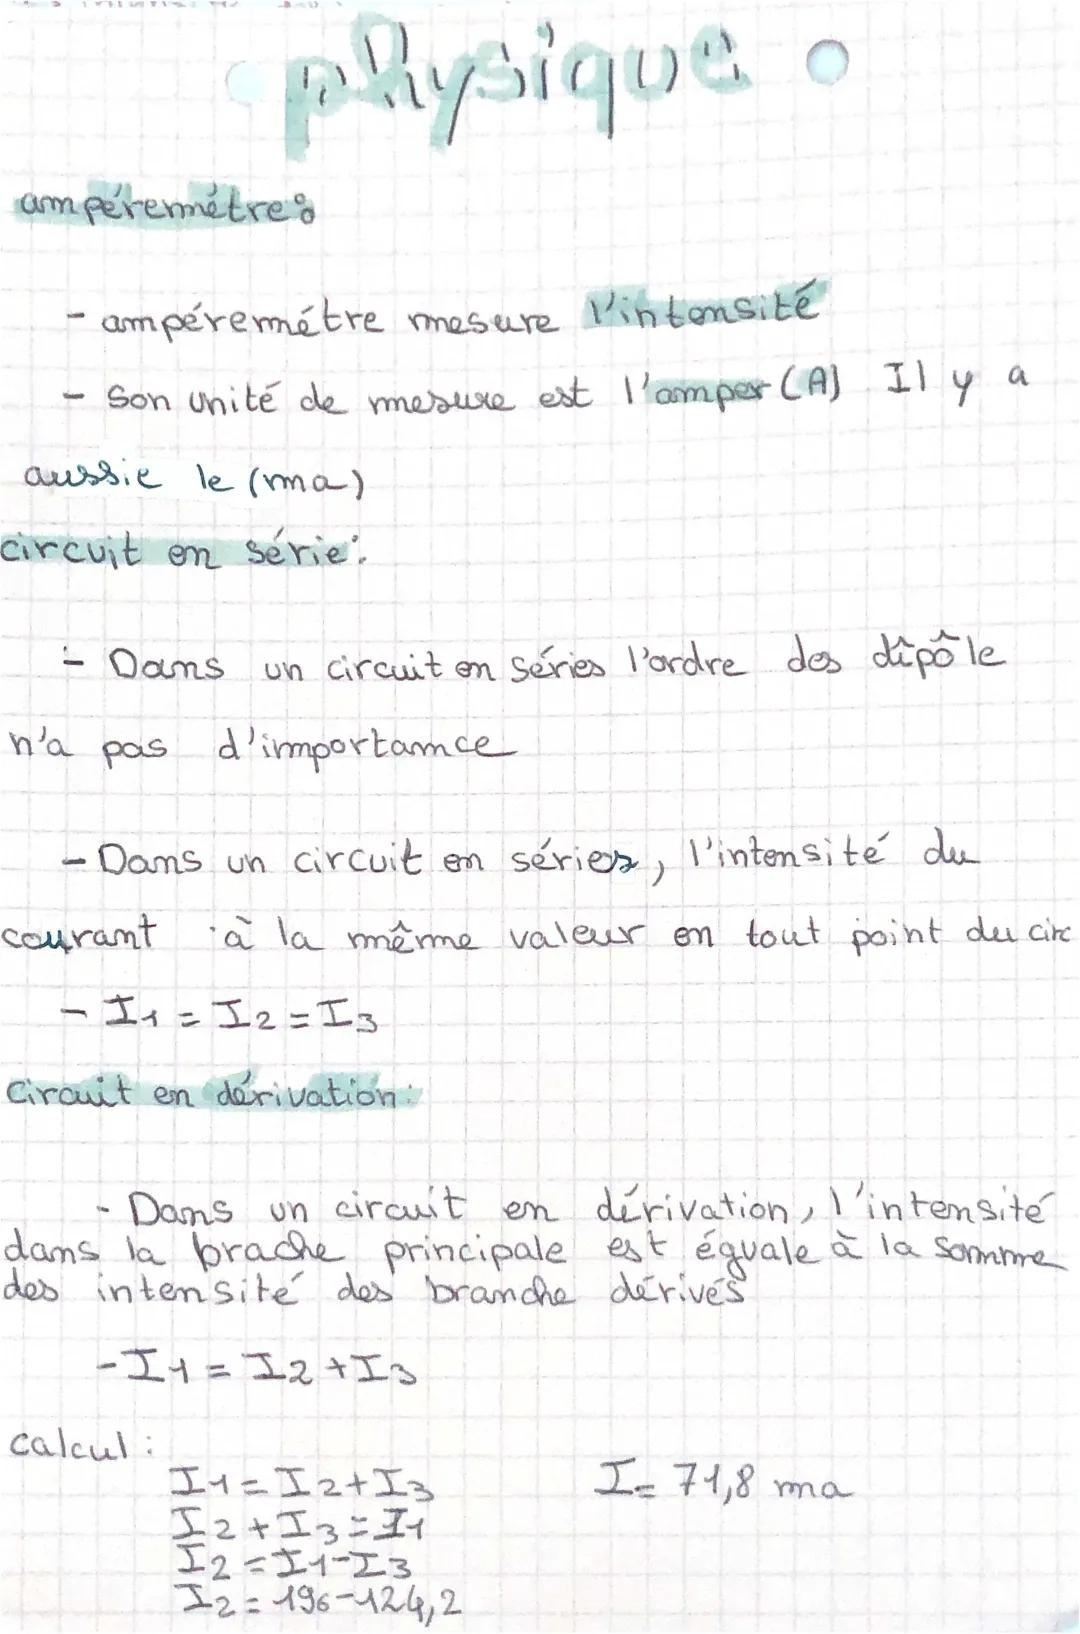 physique
ampéremétre:
- ampéremétre mesure l'intensité
- Son unité de mesure est l'amper (A) Il y a
aussie le (ma)
circuit en série:
- Dans un circuit en séries l'ordre des dîpôle
n'a pas d'importance
- Dans un circuit en séries, l'intensité du
courant à la même valeur en tout point du circ
- I1 = I2 = I3
Circuit en dérivation:
- Dans un circuit en dérivation, l'intensité
dans la brache principale est éguale à la Somme
des intensité des branche dérivés
- I1 = I2 + I3
calcul:
I1 = I2 + I3
I = 71,8 ma
I2 + I3 = I1
I2 = I1 - I3
I2 = 196 - 124,2